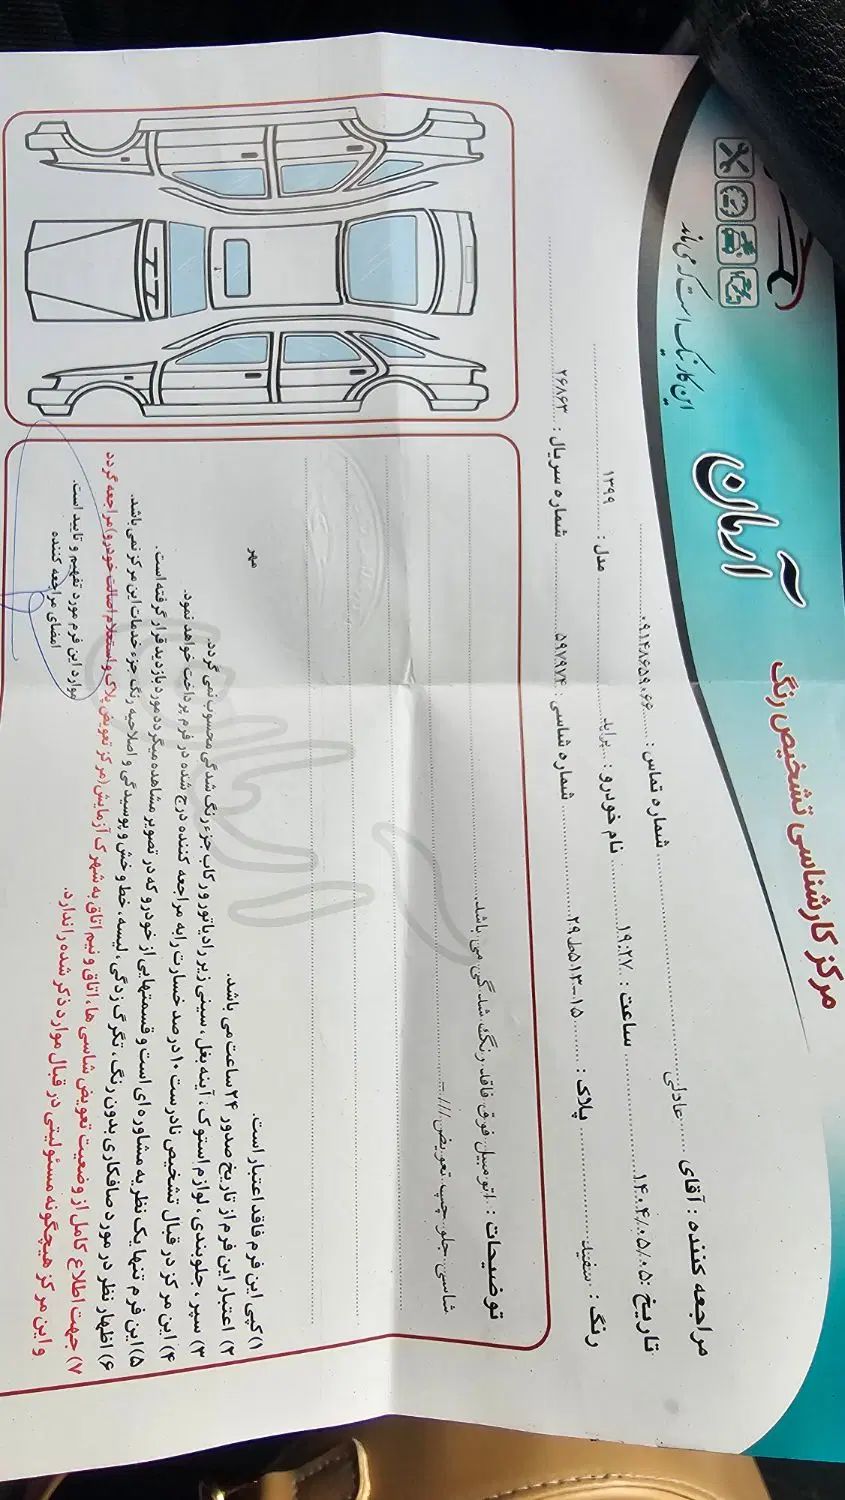 مرکز کارشناسی تشخیص رنگ
آرمان
این کار نیک است که می ماند
مراجعه کننده : آقای ..... عادلی ..... شماره تماس : ..... ۰۹۱۴۸۶۵۹۰۶۶
تاریخ : ۱۴۰۴/۰۵/۰۵ ساعت : ۱۹:۲۷ نام خودرو : پراید مدل : ۱۳۹۹
رنگ : سفید پلاک : ۱۵-۵۱۳ط۲۹ شماره شاسی : ۵۹۷۹۷۴ شماره سریال : ۲۶۸۶۳
توضیحات : اتومبیل فوق فاقد رنگ شدگی می باشد.
شاسی جلو چپ تعویض ///. -
۱) کپی این فرم فاقد اعتبار است.
۲) اعتبار این فرم از تاریخ صدور ۲۴ ساعت می باشد.
۳) سپر ، جلوبندی ، لوازم استوک ، آینه بغل ، سینی زیر رادیاتور و رکاب جزء رنگ شدگی محسوب نمی گردد.
۴) این مرکز در قبال تشخیص نادرست ۱۰ درصد خسارت را به مراجعه کننده درج شده در فرم پرداخت خواهد نمود.
۵) این فرم تنها یک نظریه مشاوره ای است و قسمتهایی از خودرو که در تصویر مشاهده میگردد مورد بازدید قرار گرفته است.
۶) اظهار نظر در مورد صافکاری بدون رنگ ، تگرگ زدگی ، لیسه ، خط و خش و پوسیدگی و اصلاحیه رنگ جزء خدمات این مرکز نمی باشد.
۷) جهت اطلاع کامل از وضعیت تعویض شاسی ها، اتاق و نیم اتاق به شهرک آزمایش (مرکز تعویض پلاک و استعلام اصالت خودرو) مراجعه گردد
و این مرکز هیچگونه مسئولیتی در قبال موارد ذکر شده را ندارد.
مهر
موارد این فرم مورد تفهیم و تایید است.
امضای مراجعه کننده